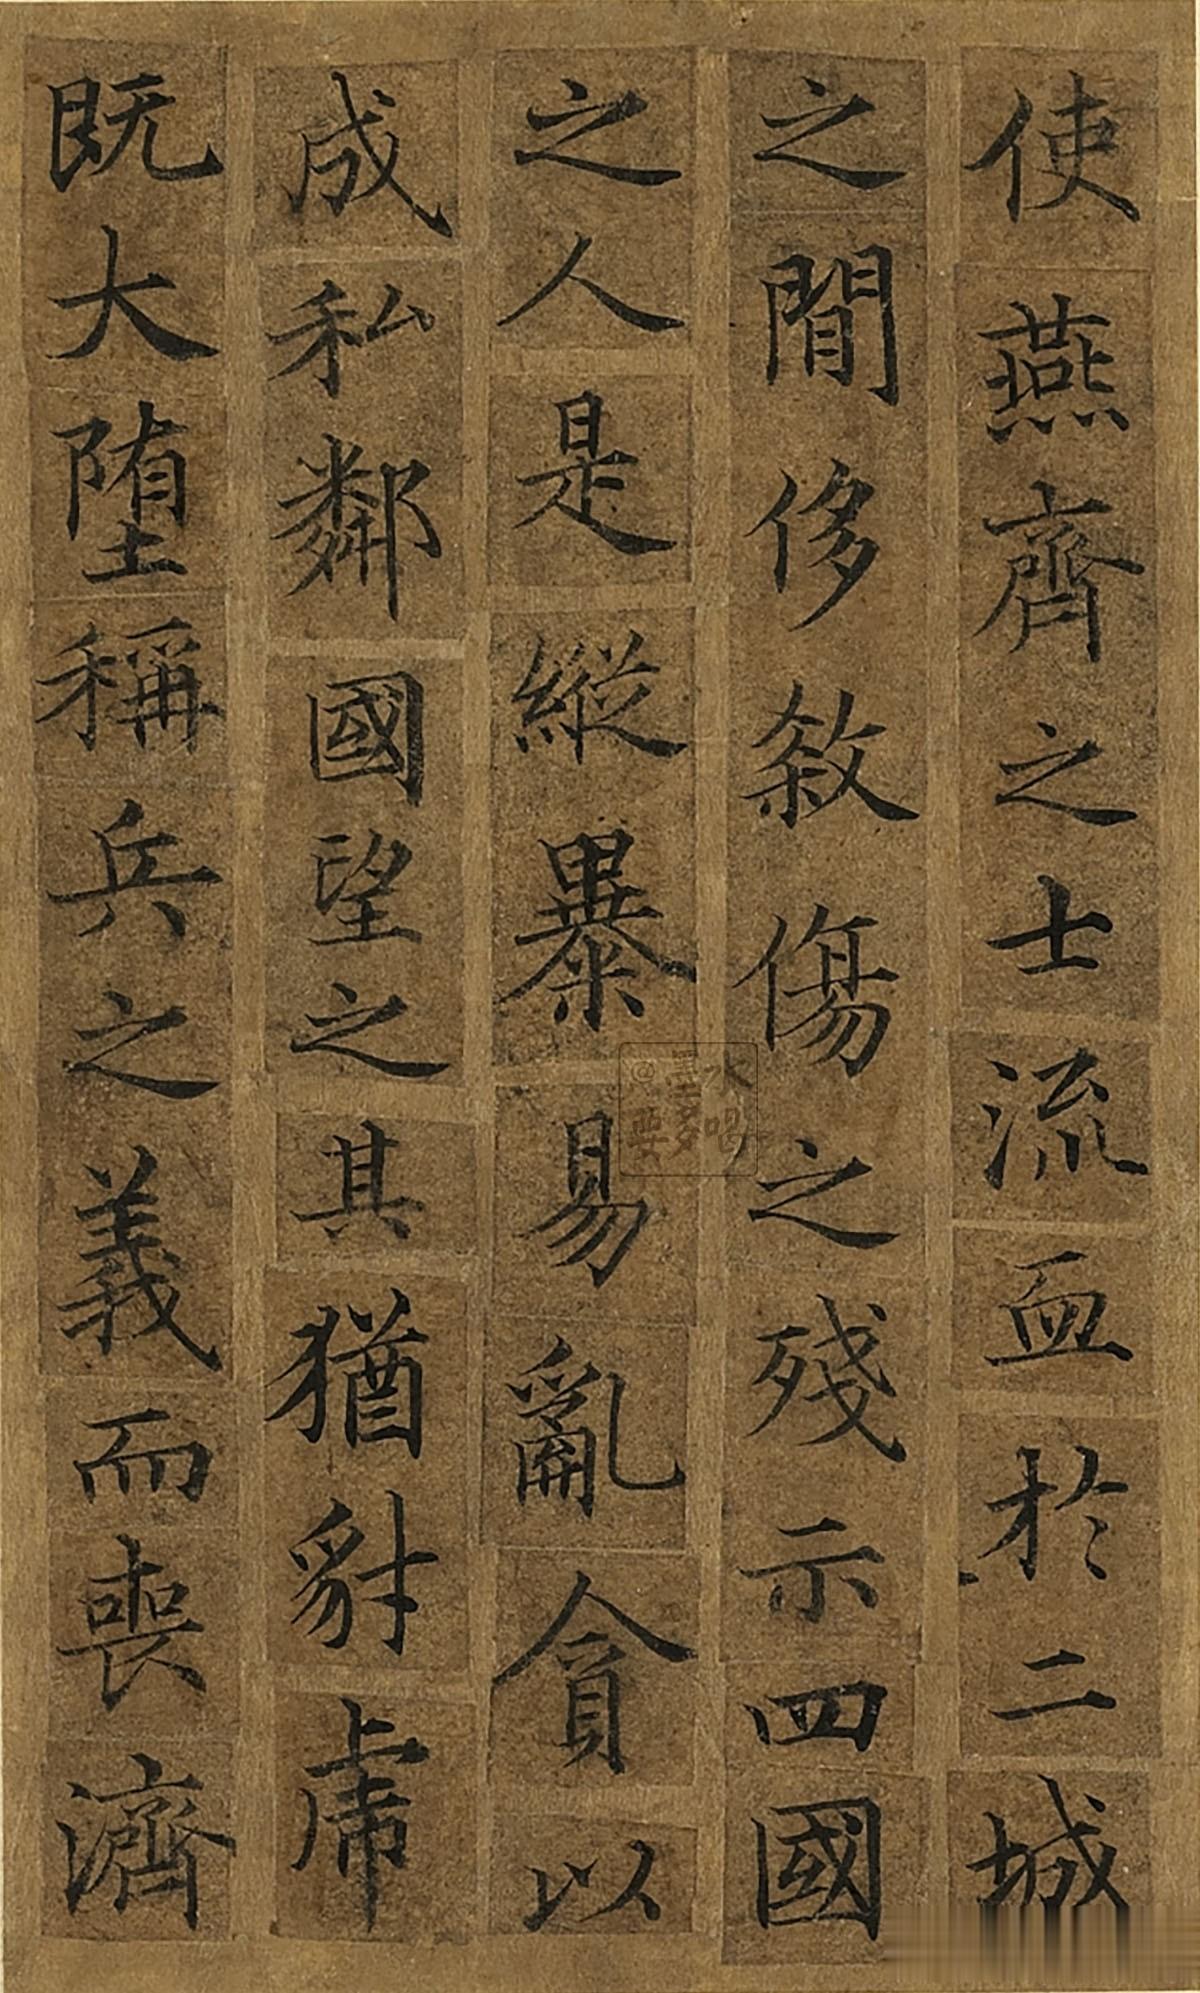 使燕齊之士流血於二城
之間侈敘傷之殘示四國
之人是縱暴易亂貪以
成私鄰國望之其猶豺虎
既大墮稱兵之義而喪濟
@墨水
要多喝